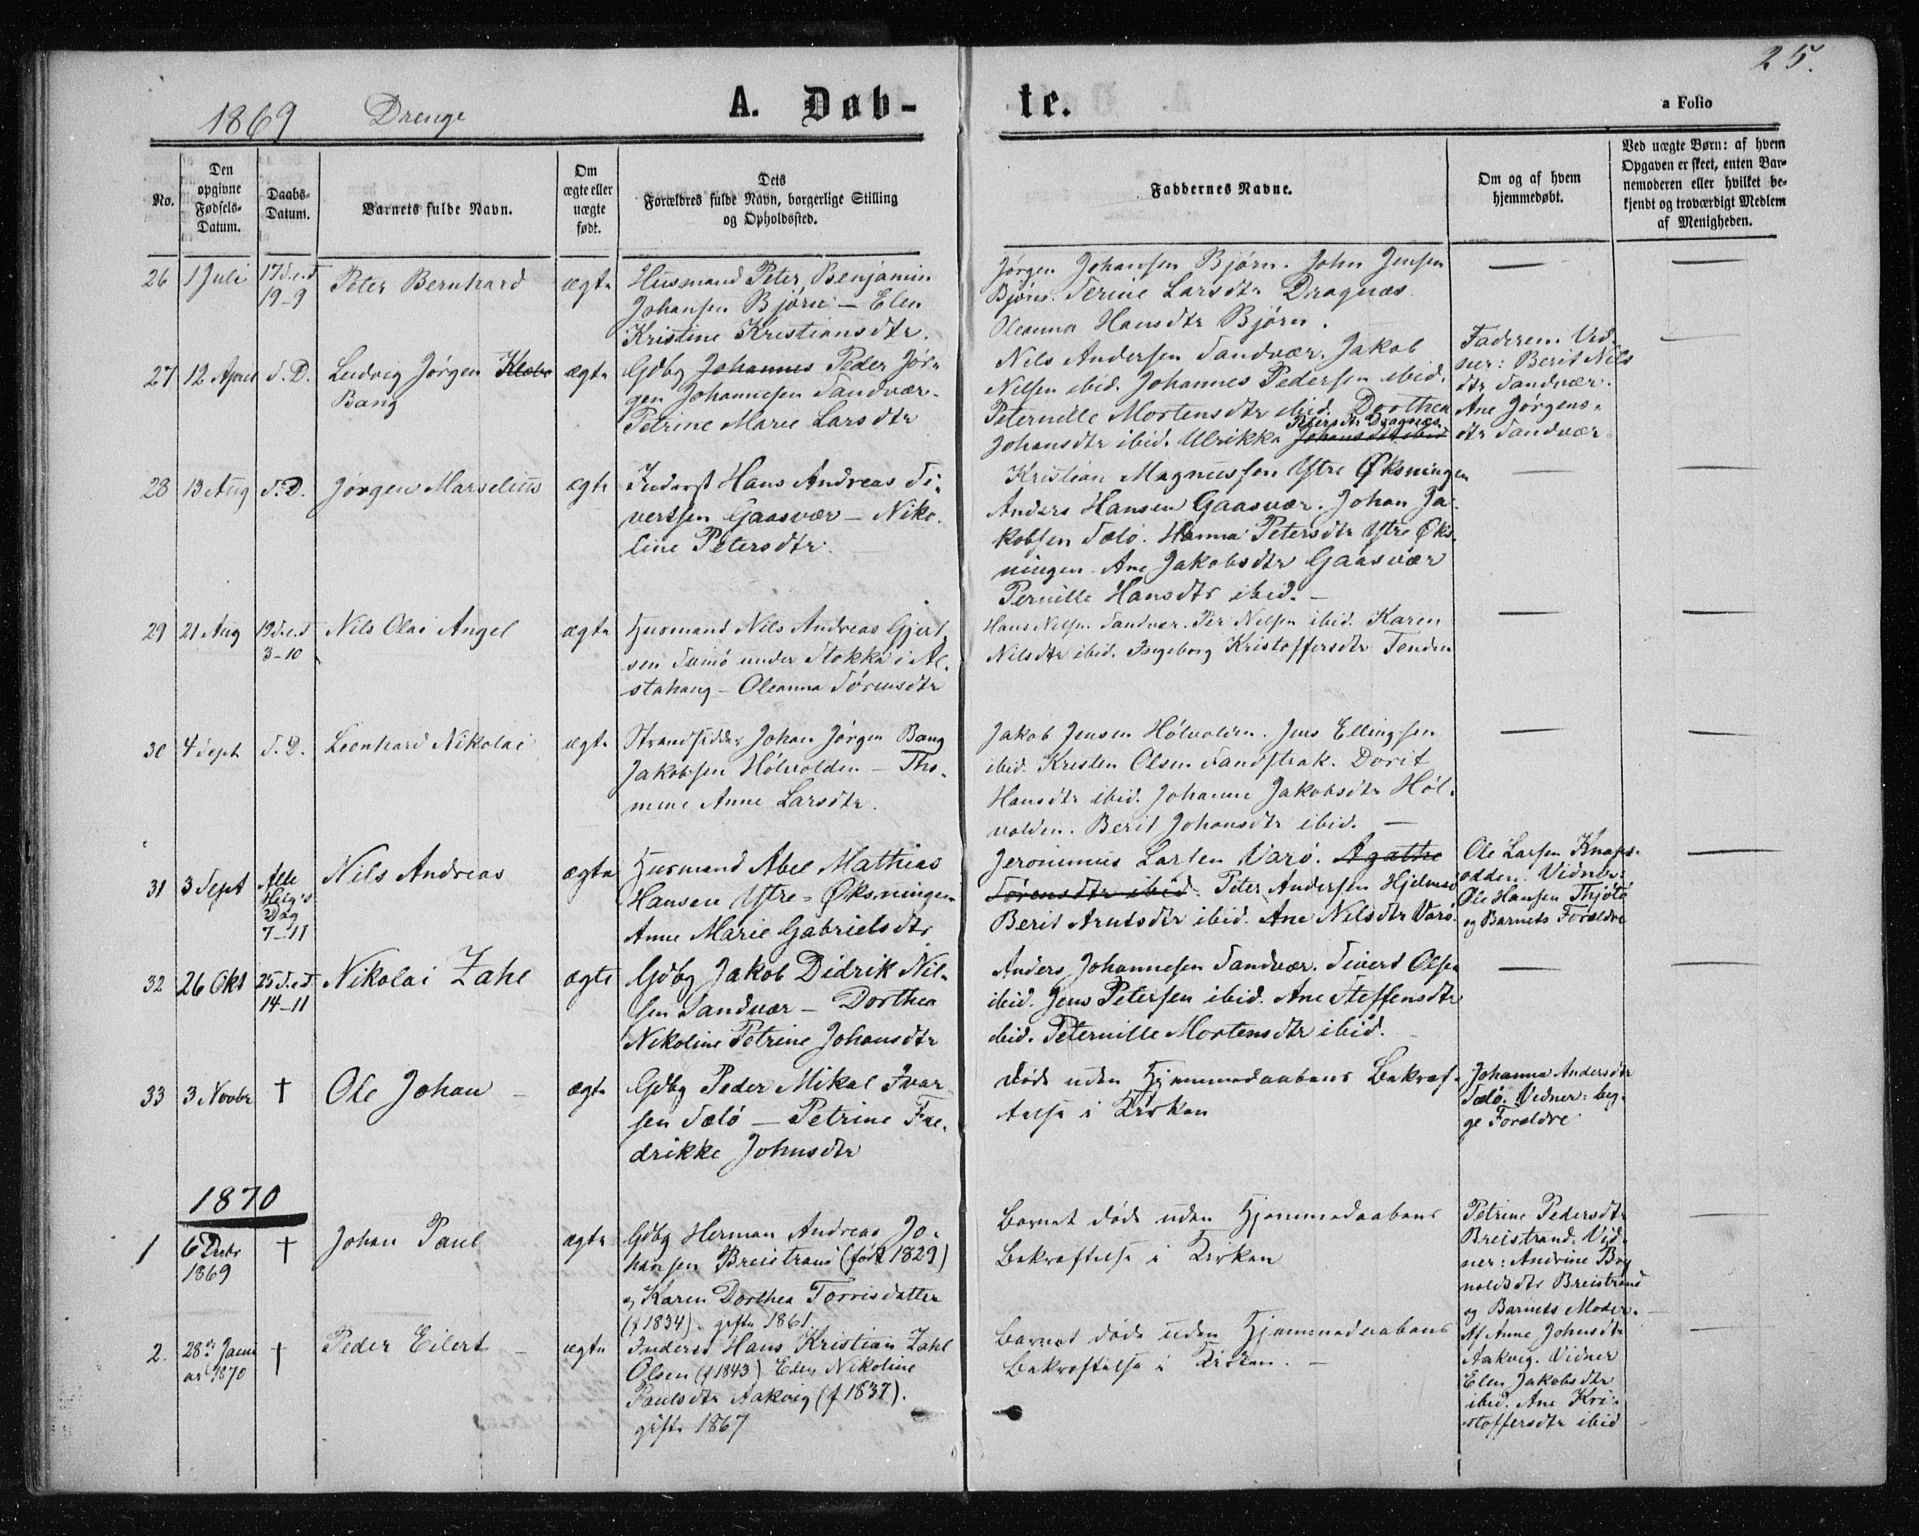 25.
1869 Drenge A. Døb- te. a Folio
No.
Den opgivne Fødsels-Datum.
Daabs-Datum.
Barnets fulde Navn.
Om ægte eller uægte født.
Dets Forældres fulde Navn, borgerlige Stilling og Opholdssted.
Faddernes Navne.
Om og af hvem hjemmedøbt.
Ved uægte Børn: af hvem Opgaven er skeet, enten Barnemoderen eller hvilket bekjendt og troværdigt Medlem af Menigheden.
26 1 Juli 17 S.e.T 19-9 Peter Bernhard ægte
Husmand Peter Benjamin
Johansen Bjørn - Elen
Kristine Kristiansdtr.
Jørgen Johansen Bjørn. John Jensen
Bjørn. Serine Larsdtr Dragnæs
Oleanna Hansdtr Bjørn.
27 12 April S.D. Ludvig Jørgen Klæbo
Bang
ægte
Gdbg Johannes Peder Jør-
gen Johannesen Sandvær-
Petrine Marie Larsdtr
Nils Andersen Sandvær. Jakob
Nilsen ibid. Johannes Pedersen ibid.
Peternille Mortensdtr ibid. Dorthea
Johansdtr ibid. Ulrikka Johansdtr ibid
Petersdtr Dragnæs
Faderen. Vid-
ner: Berit Nils
dtr Sandvær.
Ane Jørgens-
dtr Sandvær
28 13 Aug S.D. Jørgen Marselius ægte
Inderst Hans Andreas Si-
vertsen Gaasvær - Niko-
line Petersdtr.
Kristian Magnussen Ytre Øksningen
Anders Hansen Gaasvær. Johan Ja-
kobsen Sælø. Hanna Petersdtr Ytre Øks-
ningen. Ane Jakobsdtr Gaasvær
Pernille Hansdtr ibid. -
29 21 Aug 19 S.e.T 3-10 Nils Olai Angel ægte
Husmand Nils Andreas Gjert
sen under Stokka i Al-
stahaug - Oleanna Sørensdtr
Hans Nilsen Sandvær. Per Nilsen ibid. Karen
Nilsdtr ibid. Ingeborg Kristoffersdtr
30 4 Sept S.D. Leonhard Nikolai ægte
Strandsidder Johan Jørgen Bang
Jakobsen Hølvolden - Tho-
mine Anne Larsdtr.
Jakob Jensen Hølvolden. Jens Ellingsen
ibid. Kristen Olsen Sandstrak. Dorit
Hansdtr ibid. Johanne Jakobsdtr Høl-
volden. Berit Johansdtr ibid. -
31 3 Sept Alle Helg's Dag 7-11 Nils Andreas ægte
Husmand Abel Mathias
Hansen Ytre-Øksningen
Anne Marie Gabrielsdtr
Jeronimus Larsen Varø. Agathe
Sørensdtr ibid. Peter Andersen Hjelmsø
Berit Arntsdtr ibid. Ane Nilsdtr Varø.
Ole Larsen Knaps-
odden. Vidner:
Ole Hansen Thjøtø
og Barnets Forældre
32 26 Okt 25 S.e.T 14-11 Nikolai Zahl ægte
Gdbg Jakob Didrik Nil-
sen Sandvær - Dorthea
Nikoline Petrine Johansdtr
Anders Johannesen Sandvær. Sivert Olsen
ibid. Jens Petersen ibid. Ane Steffensdtr
ibid. Peternille Mortensdtr ibid.
33 3 Novbr † Ole Johan - ægte
Gdbg Peder Mikal Ivar
sen Sælø - Petrine Fre-
drikke Johnsdtr
Døde uden Hjemmedaabens Bekræf-
telse i Kirken
Johanna Andersdtr
Sælø. Vidner: beg-
ge Forældre
1870
1 6 Decbr 1869 † Johan Paul ægte
Gdbg Herman Andreas Jo-
hansen Breistrand (født 1829)
og Karen Dorthea Torrisdatter
(f 1834). gifte 1861.
Barnet døde uden Hjemmedaabens
Bekræftelse i Kirken
Petrine Pedersdtr
Breistrand. Vid-
ner: Andrine Bag
noldsdtr Breistrand
og Barnets Moder.
2. 28de Janu ar 1870 † Peder Eilert ægte
Inderst Hans Kristian Zahl
Olsen (f 1843) Elen Nikoline
Paulsdtr Aakvig (f 1837).
gifte 1867
Barnet døde uden Hjemmedaabens
Bekræftelse i Kirken. -
Af Anne Johnsdtr
Aakvig. Vidner
Elen Jakobsdtr
ibid. Ane Kri-
stoffersdtr ibid